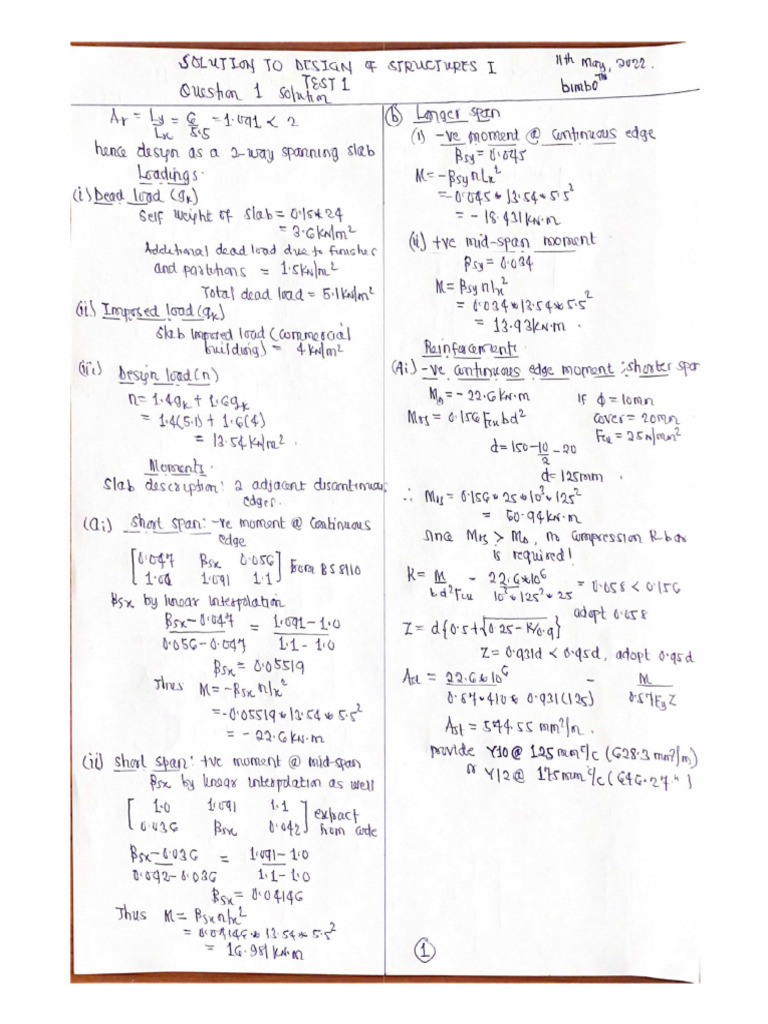 SOLUTION TO DESIGN OF STRUCTURES I
TEST 1
11th May, 2022.
Question 1 solution
bimbo™
Ar = Ly/Lx = 6/5.5 = 1.091 < 2
hence design as a 2-way spanning slab
Loadings.
(i) Dead load (gk)
Self weight of slab = 0.15*24
= 3.6kN/m²
Additional dead load due to finishes
and partitions = 1.5kN/m²
Total dead load = 5.1kN/m²
(ii) Imposed load (qk)
Slab Imposed load (commercial
building) = 4kN/m²
(iii) Design load (n)
n = 1.4gk + 1.6qk
= 1.4(5.1) + 1.6(4)
= 13.54kN/m².
Moments.
Slab description: 2 adjacent discontinuous
edges.
(ai) Short span: -ve moment @ continuous
edge
[0.047 βsx 0.056
1.00 1.091 1.1] from BS8110
βsx by linear interpolation
βsx-0.047/0.056-0.047 = 1.091-1.0/1.1-1.0
βsx = 0.05519
Thus M = -βsx nlx²
= -0.05519*13.54*5.5²
= -22.6kN.m
(ii) Short span: +ve moment @ mid-span
βsx by linear interpolation as well
[1.0 1.091 1.1
0.036 βsx 0.042] extract from code
βsx-0.036/0.042-0.036 = 1.091-1.0/1.1-1.0
βsx = 0.04146
Thus M = βsx nlx²
= 0.04146*13.54*5.5²
= 16.981kN.m
(b) Longer span
(i) -ve moment @ continuous edge
βsy = 0.045
M = -βsy nLx²
= -0.045*13.54*5.5²
= -18.431kN.m
(ii) +ve mid-span moment
βsy = 0.034
M = βsy nlx²
= 0.034*13.54*5.5²
= 13.93kN.m.
Reinforcement:
(Ai) -ve continuous edge moment: shorter span
= -22.6kN.m
if ϕ = 10mm
Mrs = 0.156Fcubd²
cover = 20mm
Fcu = 25N/mm²
d = 150-10/2-20
d = 125mm.
∴ Mrs = 0.156*25*10³*125²
= 60.94kN.m
since Mrs > , no compression R-bar
is required!
K = M/bd²Fcu = 22.6*10⁶/10³*125²*25 = 0.058 < 0.156
adopt 0.058
Z = d{0.5+√0.25-K/0.9}
Z = 0.931d < 0.95d, adopt 0.95d
Ast = 22.6*10⁶/0.87*410*0.931(125) - M/0.87FyZ
Ast = 544.55mm²/m.
provide Y10@125mm c/c (628.3mm²/m)
or Y12@175mm c/c (646.27")
1